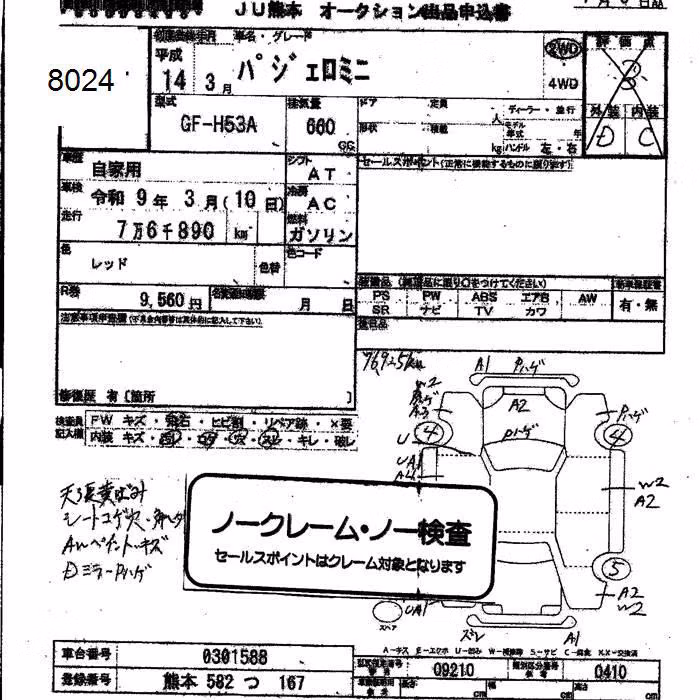 JU熊本 オークション出品申込書
8024
車名・グレード
平成
14 3月
パジェロミニ
2WD
4WD
評価点
3
外装 内装
D C
型式
GF-H53A
排気量
660
cc
ドア 定員 人 ディーラー・並行
形状 積載 kg モデル年式 年
ハンドル 左・右
車歴
自家用
シフト
AT
セールスポイント(正常に機能するものに限ります)
車検
令和 9年 3月(10日)
冷房
AC
走行
7万6千890 km
燃料
ガソリン
色
レッド
色替
色コード
R券
9,560円
月 日
PS PW ABS エアB AW
SR ナビ TV カワ
有・無
修復歴 有 [箇所 ]
検査員
記入欄
FW キズ・飛石・ヒビ割・リペア跡・×要
内装 キズ・凹・コゲ・穴・スレ・キレ・破レ
76925km
A1 Pハゲ
W2
A3
A2
Pハゲ
Pハゲ
4
4
U
UA1
W2
A2
5
A2
W2
UA1
スペア
スレ
A1
天張黄ばみ
シートコゲ穴
AWペイント・キズ
Dミラーハゲ
ノークレーム・ノー検査
セールスポイントはクレーム対象となります
A-キズ E-エクボ U-凹み W-補修跡 S-サビ C-腐食 XX-交換済
車台番号
0301588
登録番号
熊本 582 つ 167
型式指定番号
09210
類別区分番号
0410
長さ cm
幅 cm
高さ cm